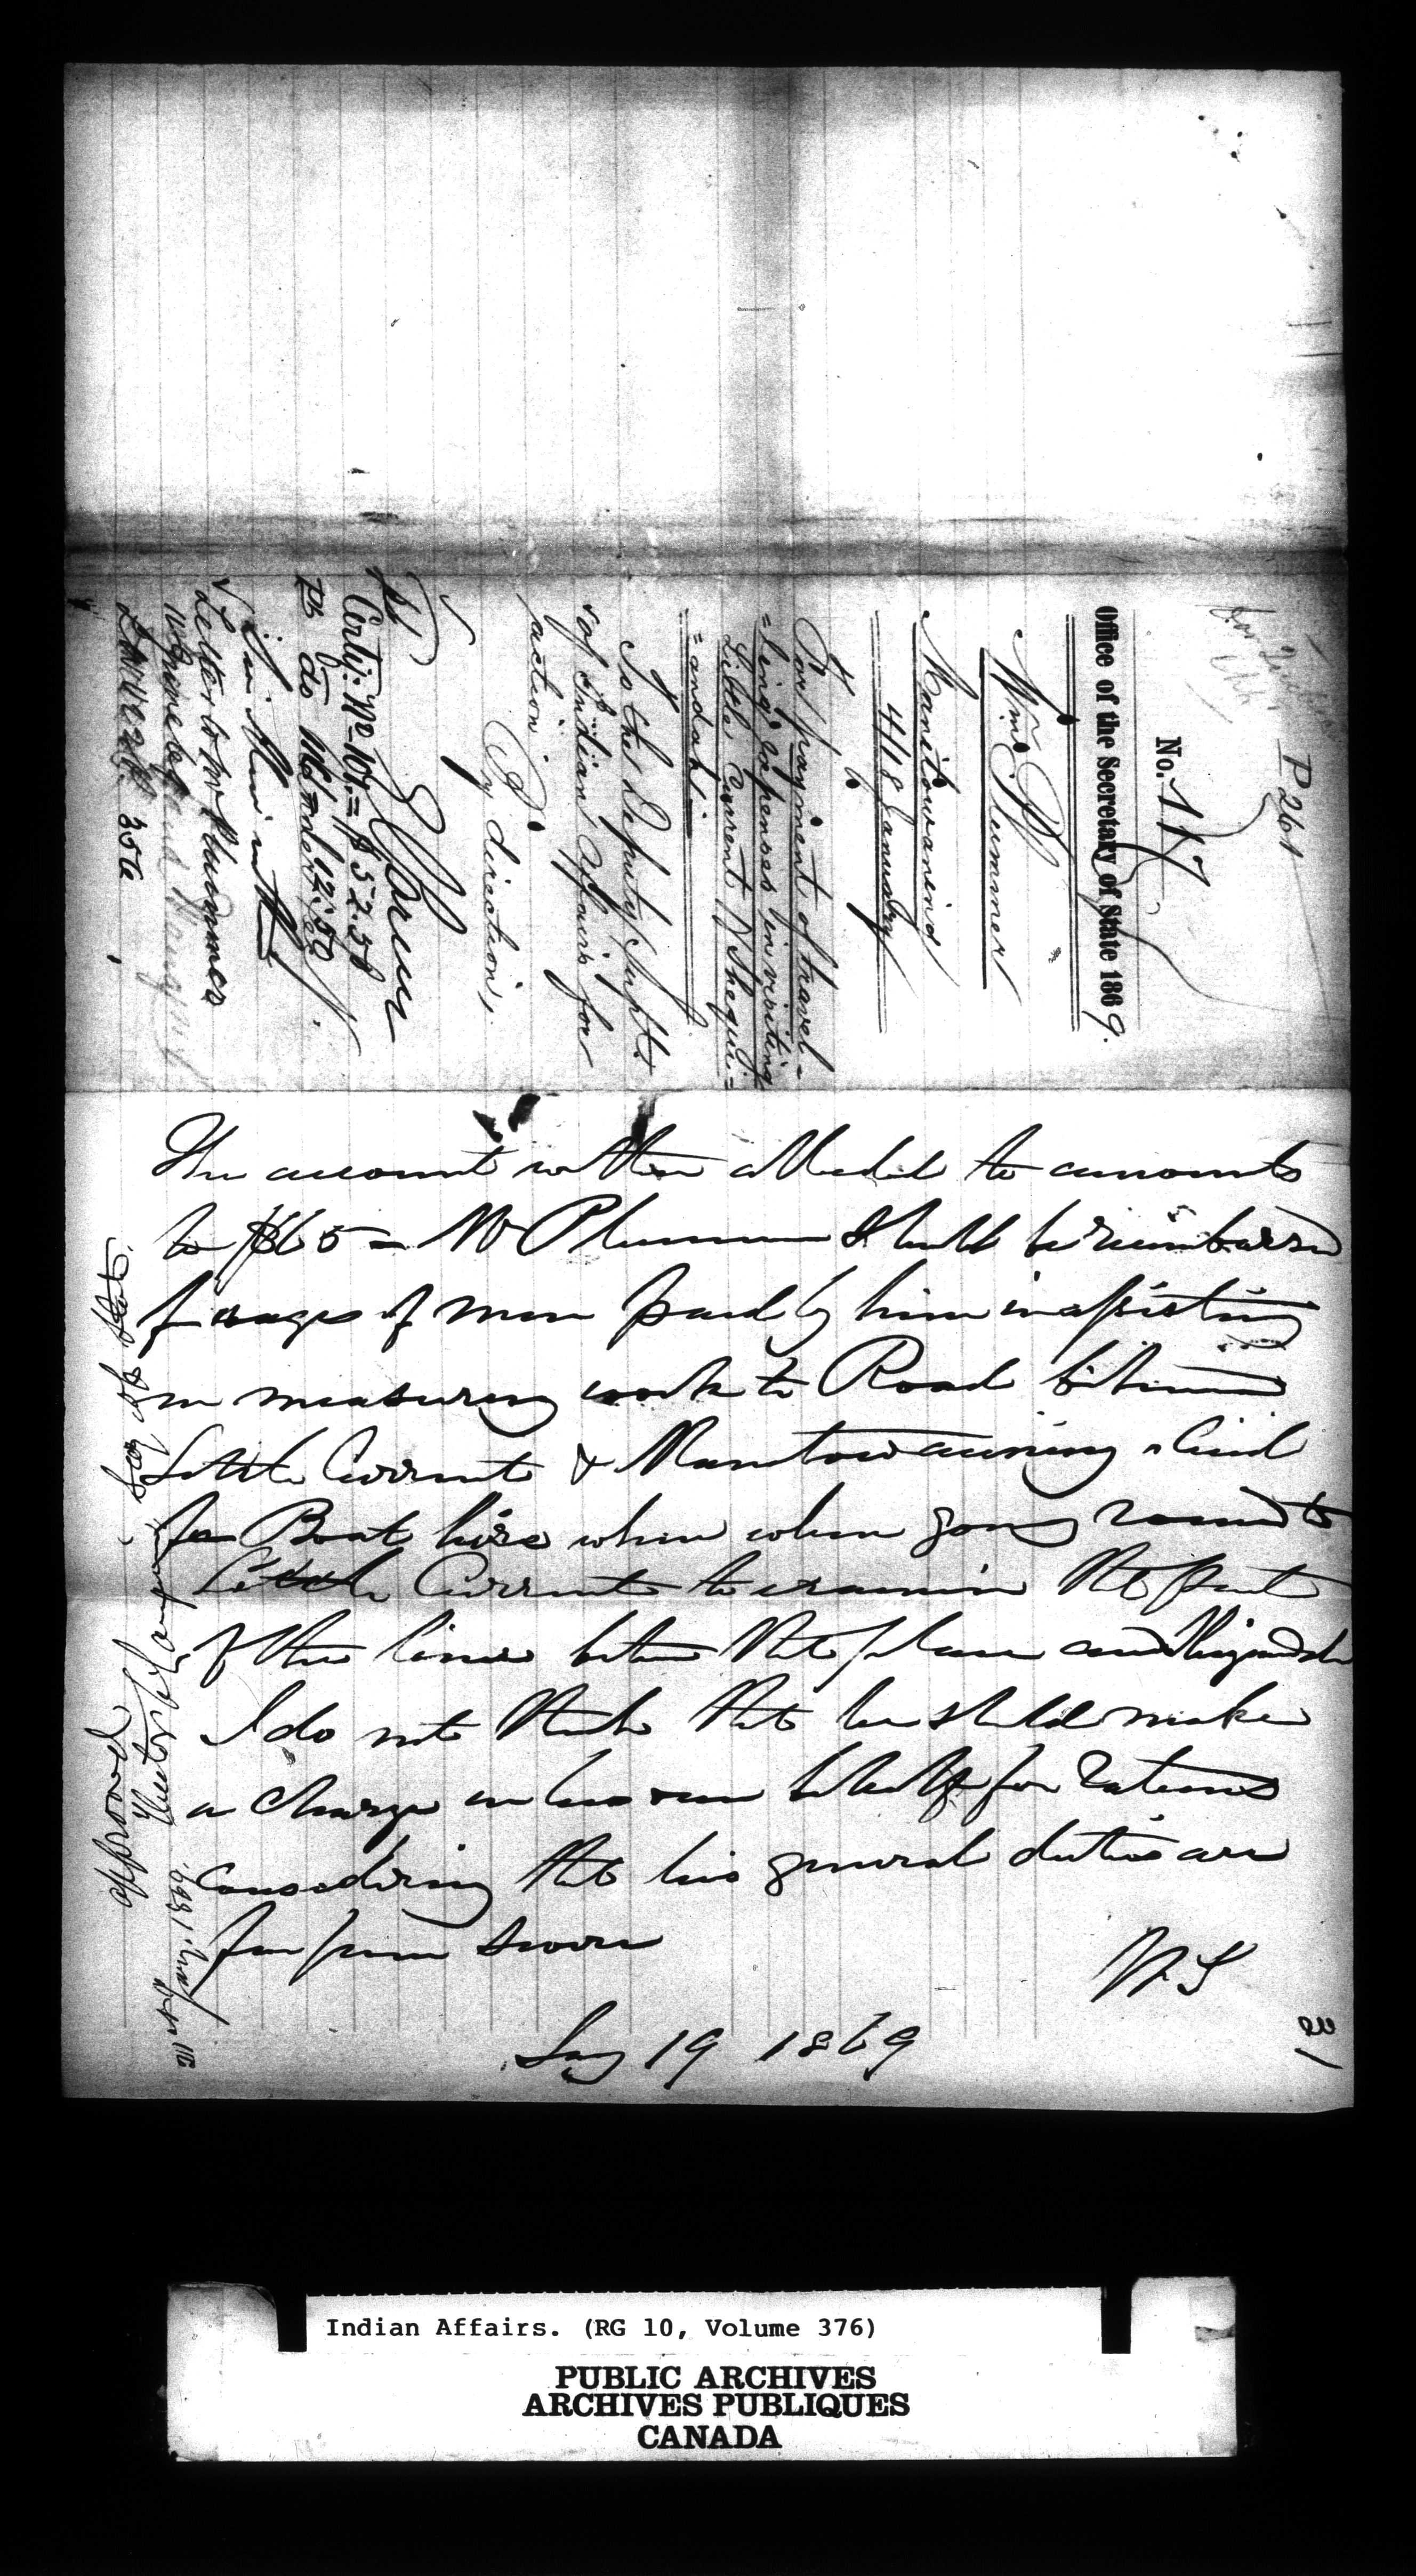 P 261
No. 117
Office of the Secretary of State 1869.
Wm. Plummer
Manitowaning
4/18 January
For payment of travel-
=ling expenses in visiting
Little Current & Shegui=
=andah.
To the Deputy Supt.
of Indian Affairs for
action.
By direction,
Certif: No 101 = $52.50
do 12.50
Letter to Mr Plummer
356
The account within alluded to amounts
to $65 = Mr Plummer should be reimbursed
for wages of men paid by him in assisting
in measuring work to Road between
Little Current & Manitowaning and
for Boat hire when when going round to
Little Current to examine that part
of the line between that place and Sheguiandah
I do not think that he should make
a charge on his own behalf for rations
considering that his general duties are
W. S
Jany 19 1869
approved
Hector L. Langevin Secy of State
Jany. 1869
231
Indian Affairs. (RG 10, Volume 376)
PUBLIC ARCHIVES
ARCHIVES PUBLIQUES
CANADA